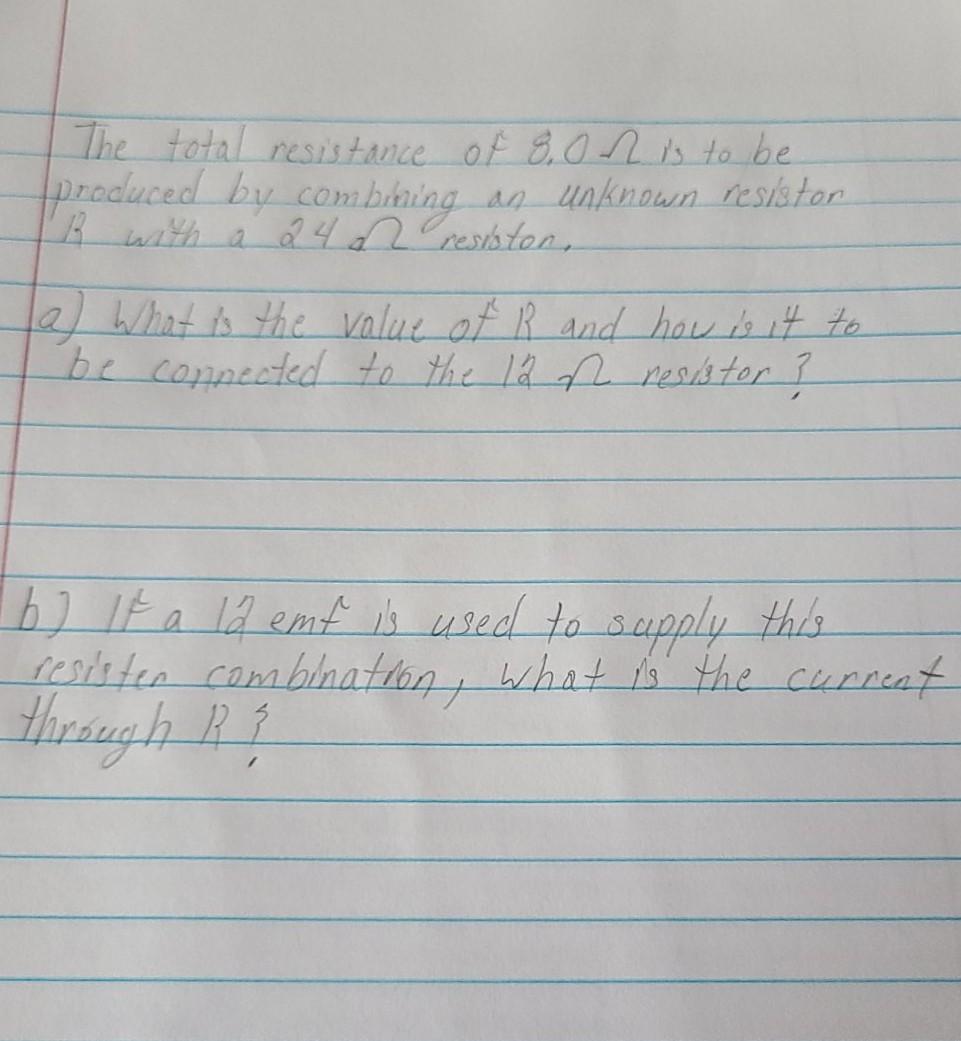 The total resistance of 8.0 Ω is to be
produced by combining an unknown resistor
R with a 24 Ω resistor.
a) What is the value of R and how is it to
be connected to the 12 Ω resistor?
b) If a 12 emf is used to supply this
resister combination, what is the current
through R?